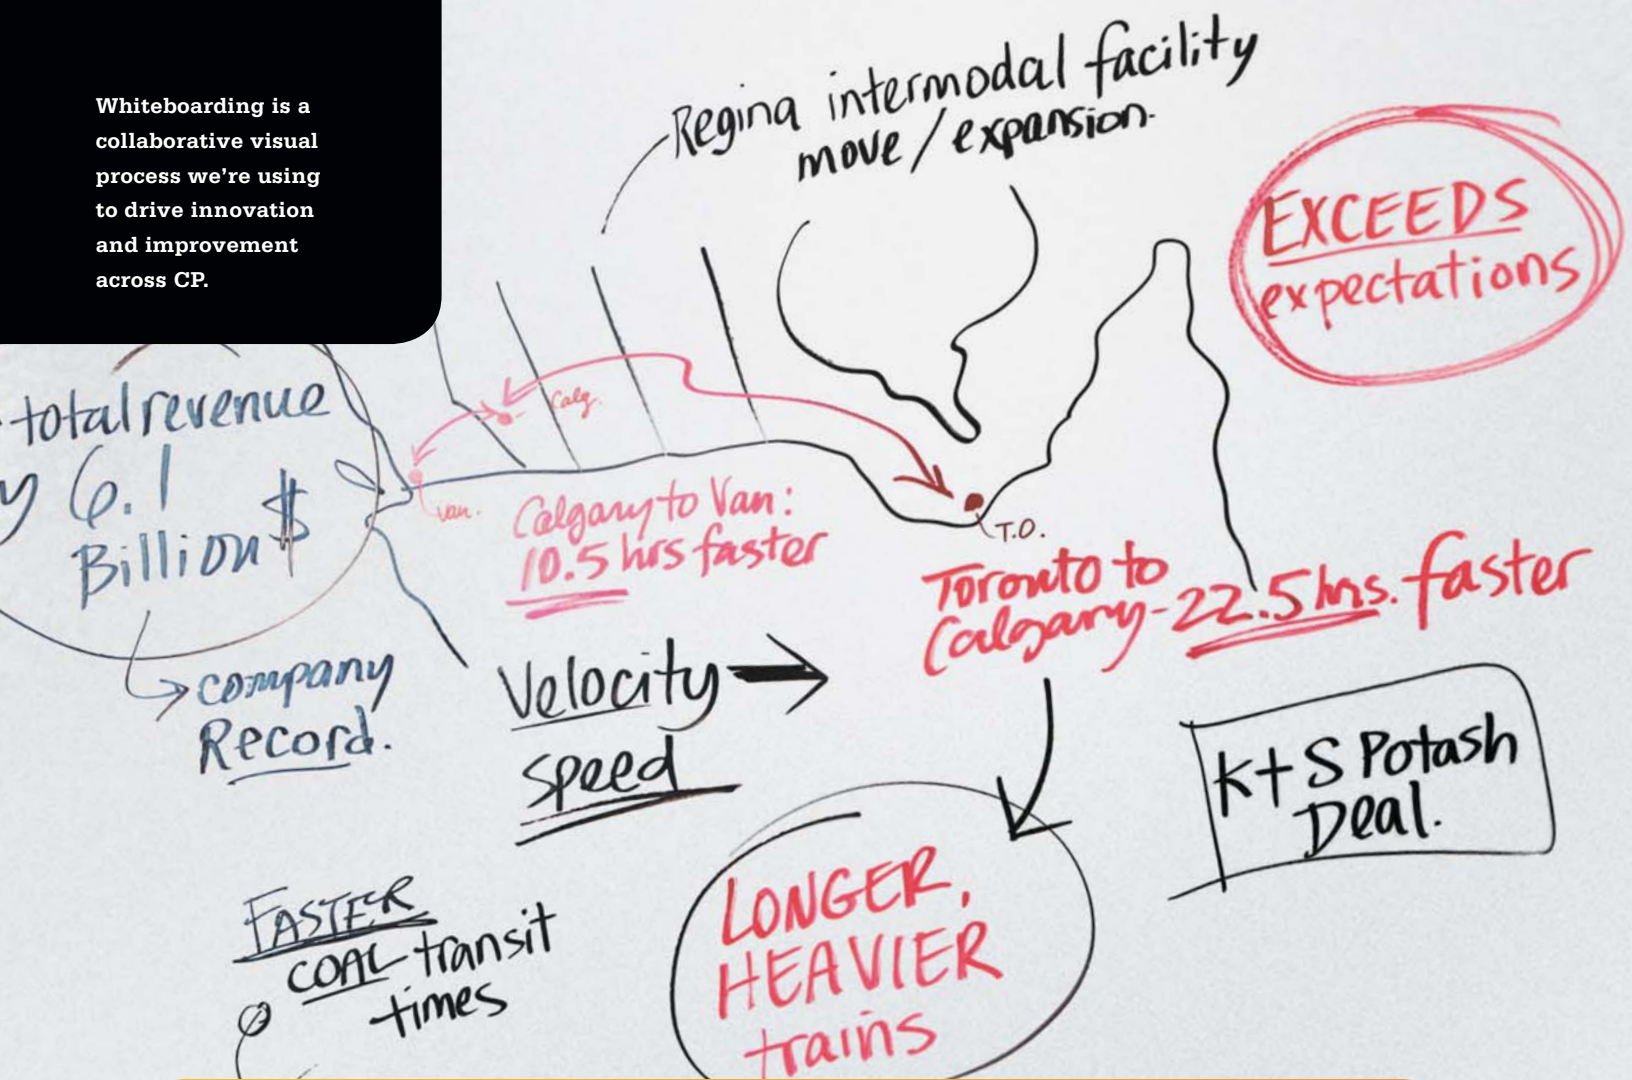 Whiteboarding is a
collaborative visual
process we're using
to drive innovation
and improvement
across CP.
Regina intermodal facility
move / expansion.
EXCEEDS
expectations
total revenue
y 6.1
Billion $
company
Record.
Calg.
Van.
T.O.
Calgary to Van:
10.5 hrs faster
Toronto to
Calgary - 22.5 hrs. faster
Velocity
speed
K+S Potash
Deal.
FASTER
COAL transit
times
LONGER,
HEAVIER
trains